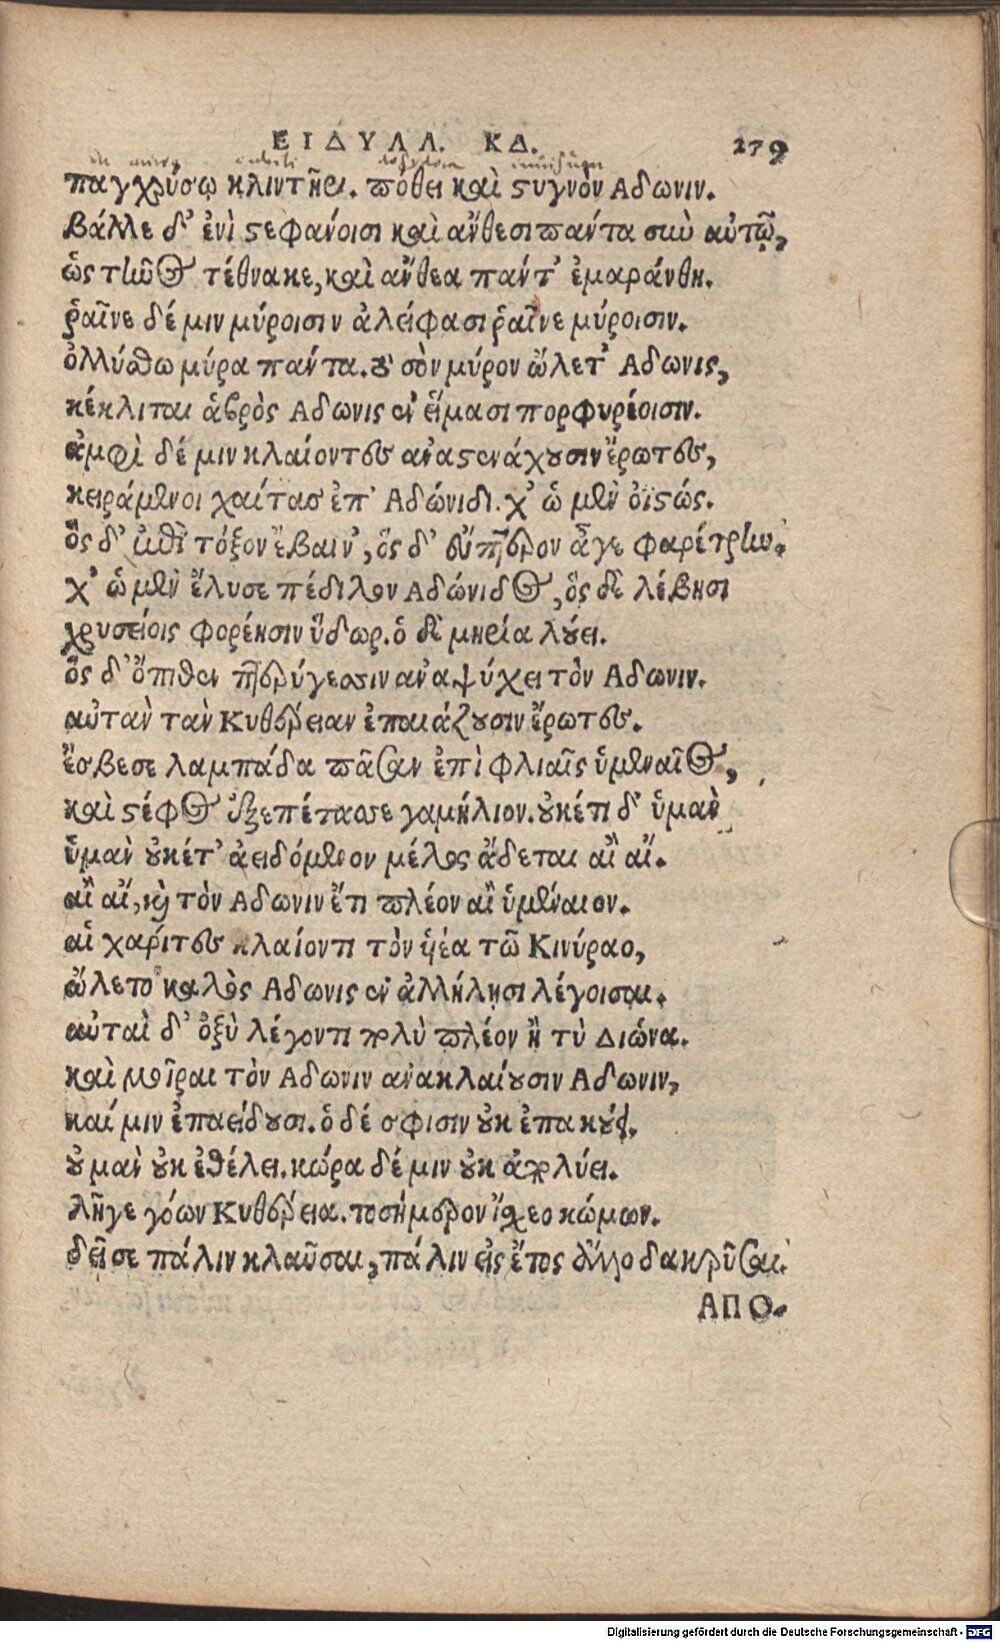 ΕΙΔΥΛΛ. ΚΔ. 279
παγχρύσῳ κλιντῆρι. πόθει καὶ στυγνὸν Αδωνιν.
βάλλε δ' ἐνὶ στεφάνοισι καὶ ἄνθεσι πάντα σιὺν αὐτῷ,
ὡς τῆνος τέθνακε, καὶ ἄνθεα πάντ' ἐμαράνθη.
ῥαῖνε δέ μιν μύροισιν ἀλείφασι ῥαῖνε μύροισιν.
ὀλλύσθω μύρα πάντα. ὁ σὸν μύρον ὤλετ' Αδωνις,
κέκλιται ἁβρὸς Αδωνις ἐν εἵμασι πορφυρέοισιν.
ἀμφὶ δέ μιν κλαίοντες ἀναστενάχουσιν ἔρωτες,
κειράμενοι χαίτας ἐπ' Αδώνιδι. χ' ὡ μὲν ὀϊστώς.
ὃς δ' ἐπὶ τόξον ἔβαιν', ὃς δ' εὔπτερον ἆγε φαρέτρην.
χ' ὡ μὲν ἔλυσε πέδιλον Αδώνιδος, ὃς δὲ λέβησι
χρυσείοις φορέησιν ὕδωρ. ὁ δὲ μηρία λούει.
ὃς δ' ὄπιθεν πτερύγεσσιν ἀναψύχει τὸν Αδωνιν.
αὐτὰν τὰν Κυθέρειαν ἐπαιάζουσιν ἔρωτες.
ἔσβεσε λαμπάδα πᾶσαν ἐπὶ φλιαῖς ὑμεναῖος,
καὶ στέφος ἐξεπέτασσε γαμήλιον. οὐκέτι δ' ὑμὰν
ὑμὰν οὐκέτ' ἀειδόμενον μέλος ᾄδεται αἲ αἴ.
αἲ αἴ, καὶ τὸν Αδωνιν ἔτι πλέον αἲ ὑμέναιον.
αἱ χάριτες κλαίοντι τὸν υἱέα τῶ Κινύραο,
ὤλετο καλὸς Αδωνις ἐν ἀλλήλησι λέγοισαι.
αὐταὶ δ' ὀξὺ λέγοντι πολὺ πλέον ἢ τὺ Διώνα.
καὶ μοῖραι τὸν Αδωνιν ἀνακλαίουσιν Αδωνιν,
καί μιν ἐπαείδουσι. ὁ δέ σφισιν οὐκ ἐπακούει.
οὐ μὰν οὐκ ἐθέλει. κώρα δέ μιν οὐκ ἀπολύει.
λῆγε γόων Κυθέρεια. τοσήμερον ἴσχεο κώμων.
δεῖ σε πάλιν κλαῦσαι, πάλιν εἰς ἔτος ἄλλο δακρῦσαι.
ΑΠΟ.